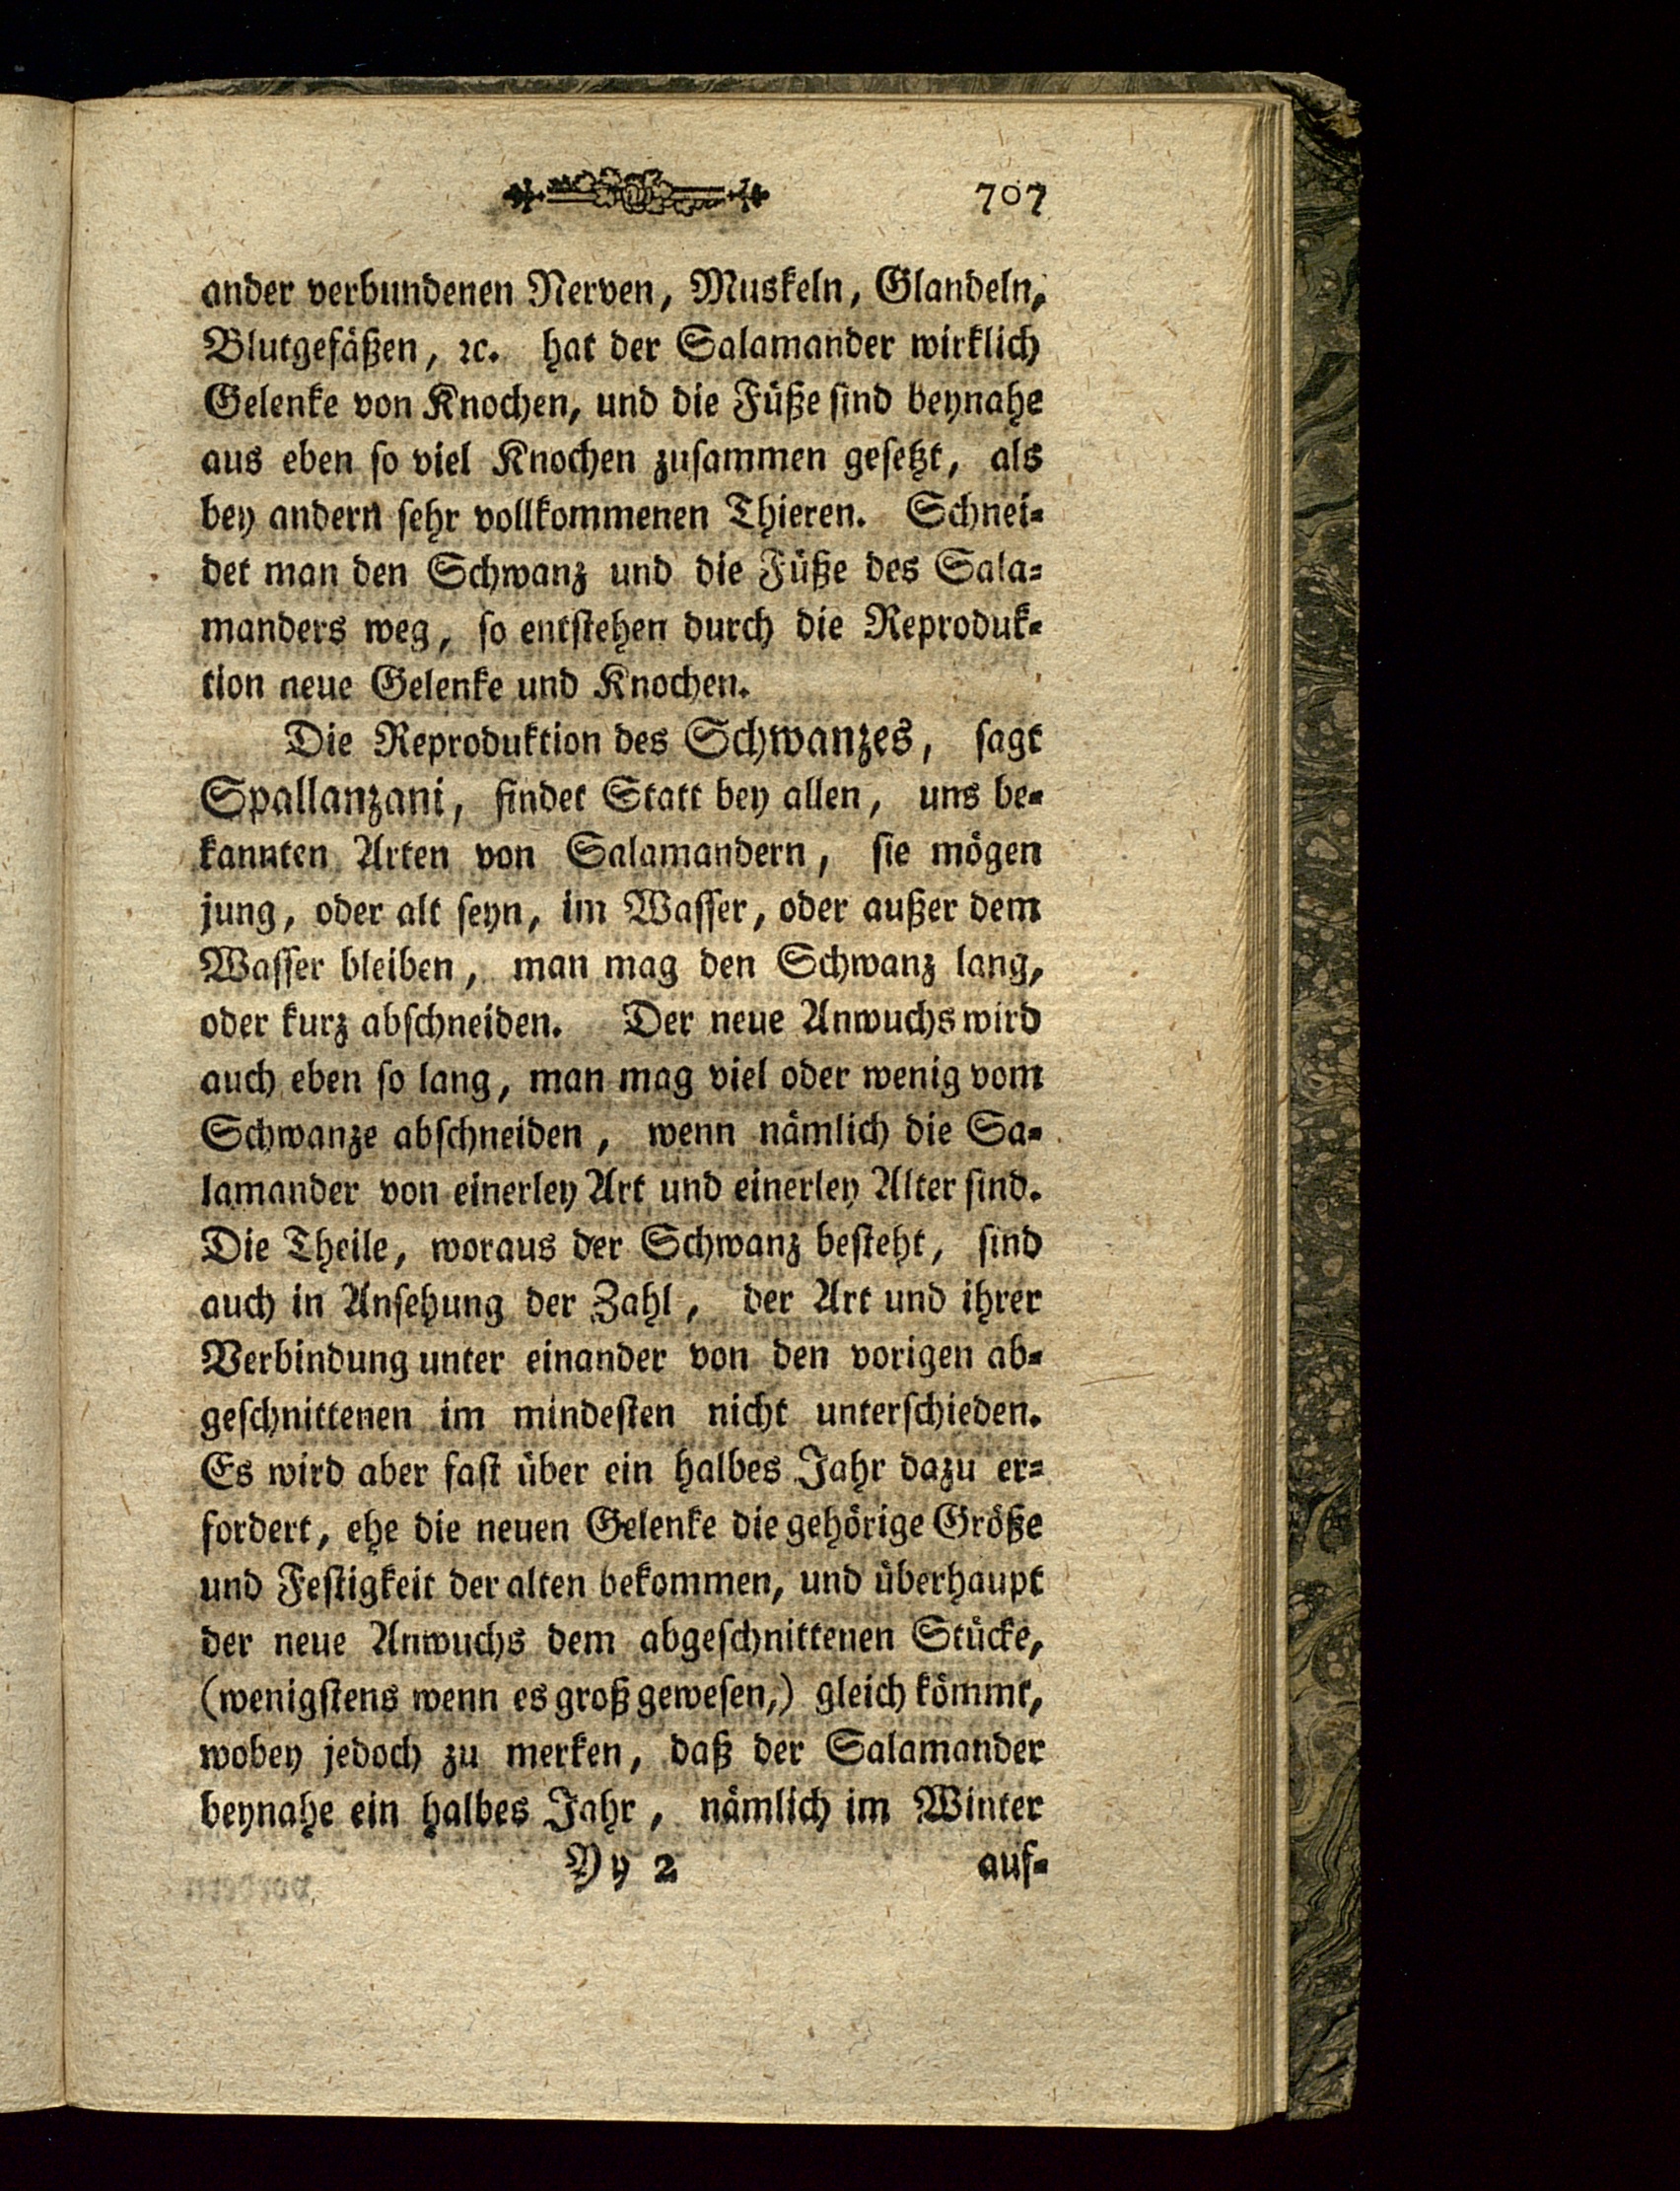 707
ander verbundenen Nerven, Muskeln, Glandeln,
Blutgefäßen, ꝛc. hat der Salamander wirklich
Gelenke von Knochen, und die Füße ſind beynahe
aus eben ſo viel Knochen zuſammen geſetzt, als
bey andern ſehr vollkommenen Thieren. Schnei⸗
det man den Schwanz und die Füße des Sala⸗
manders weg, ſo entſtehen durch die Reproduk⸗
tion neue Gelenke und Knochen.
Die Reproduktion des Schwanzes, ſagt
Spallanzani, findet Statt bey allen, uns be⸗
kannten Arten von Salamandern, ſie mögen
jung, oder alt ſeyn, im Waſſer, oder außer dem
Waſſer bleiben, man mag den Schwanz lang,
oder kurz abſchneiden. Der neue Anwuchs wird
auch eben ſo lang, man mag viel oder wenig vom
Schwanze abſchneiden, wenn nämlich die Sa⸗
lamander von einerley Art und einerley Alter ſind.
Die Theile, woraus der Schwanz beſteht, ſind
auch in Anſehung der Zahl, der Art und ihrer
Verbindung unter einander von den vorigen ab⸗
geſchnittenen im mindeſten nicht unterſchieden.
Es wird aber faſt über ein halbes Jahr dazu er⸗
fordert, ehe die neuen Gelenke die gehörige Größe
und Feſtigkeit der alten bekommen, und überhaupt
der neue Anwuchs dem abgeſchnittenen Stücke,
(wenigſtens wenn es groß geweſen,) gleich kömmt,
wobey jedoch zu merken, daß der Salamander
beynahe ein halbes Jahr, nämlich im Winter
Yy 2 auf⸗